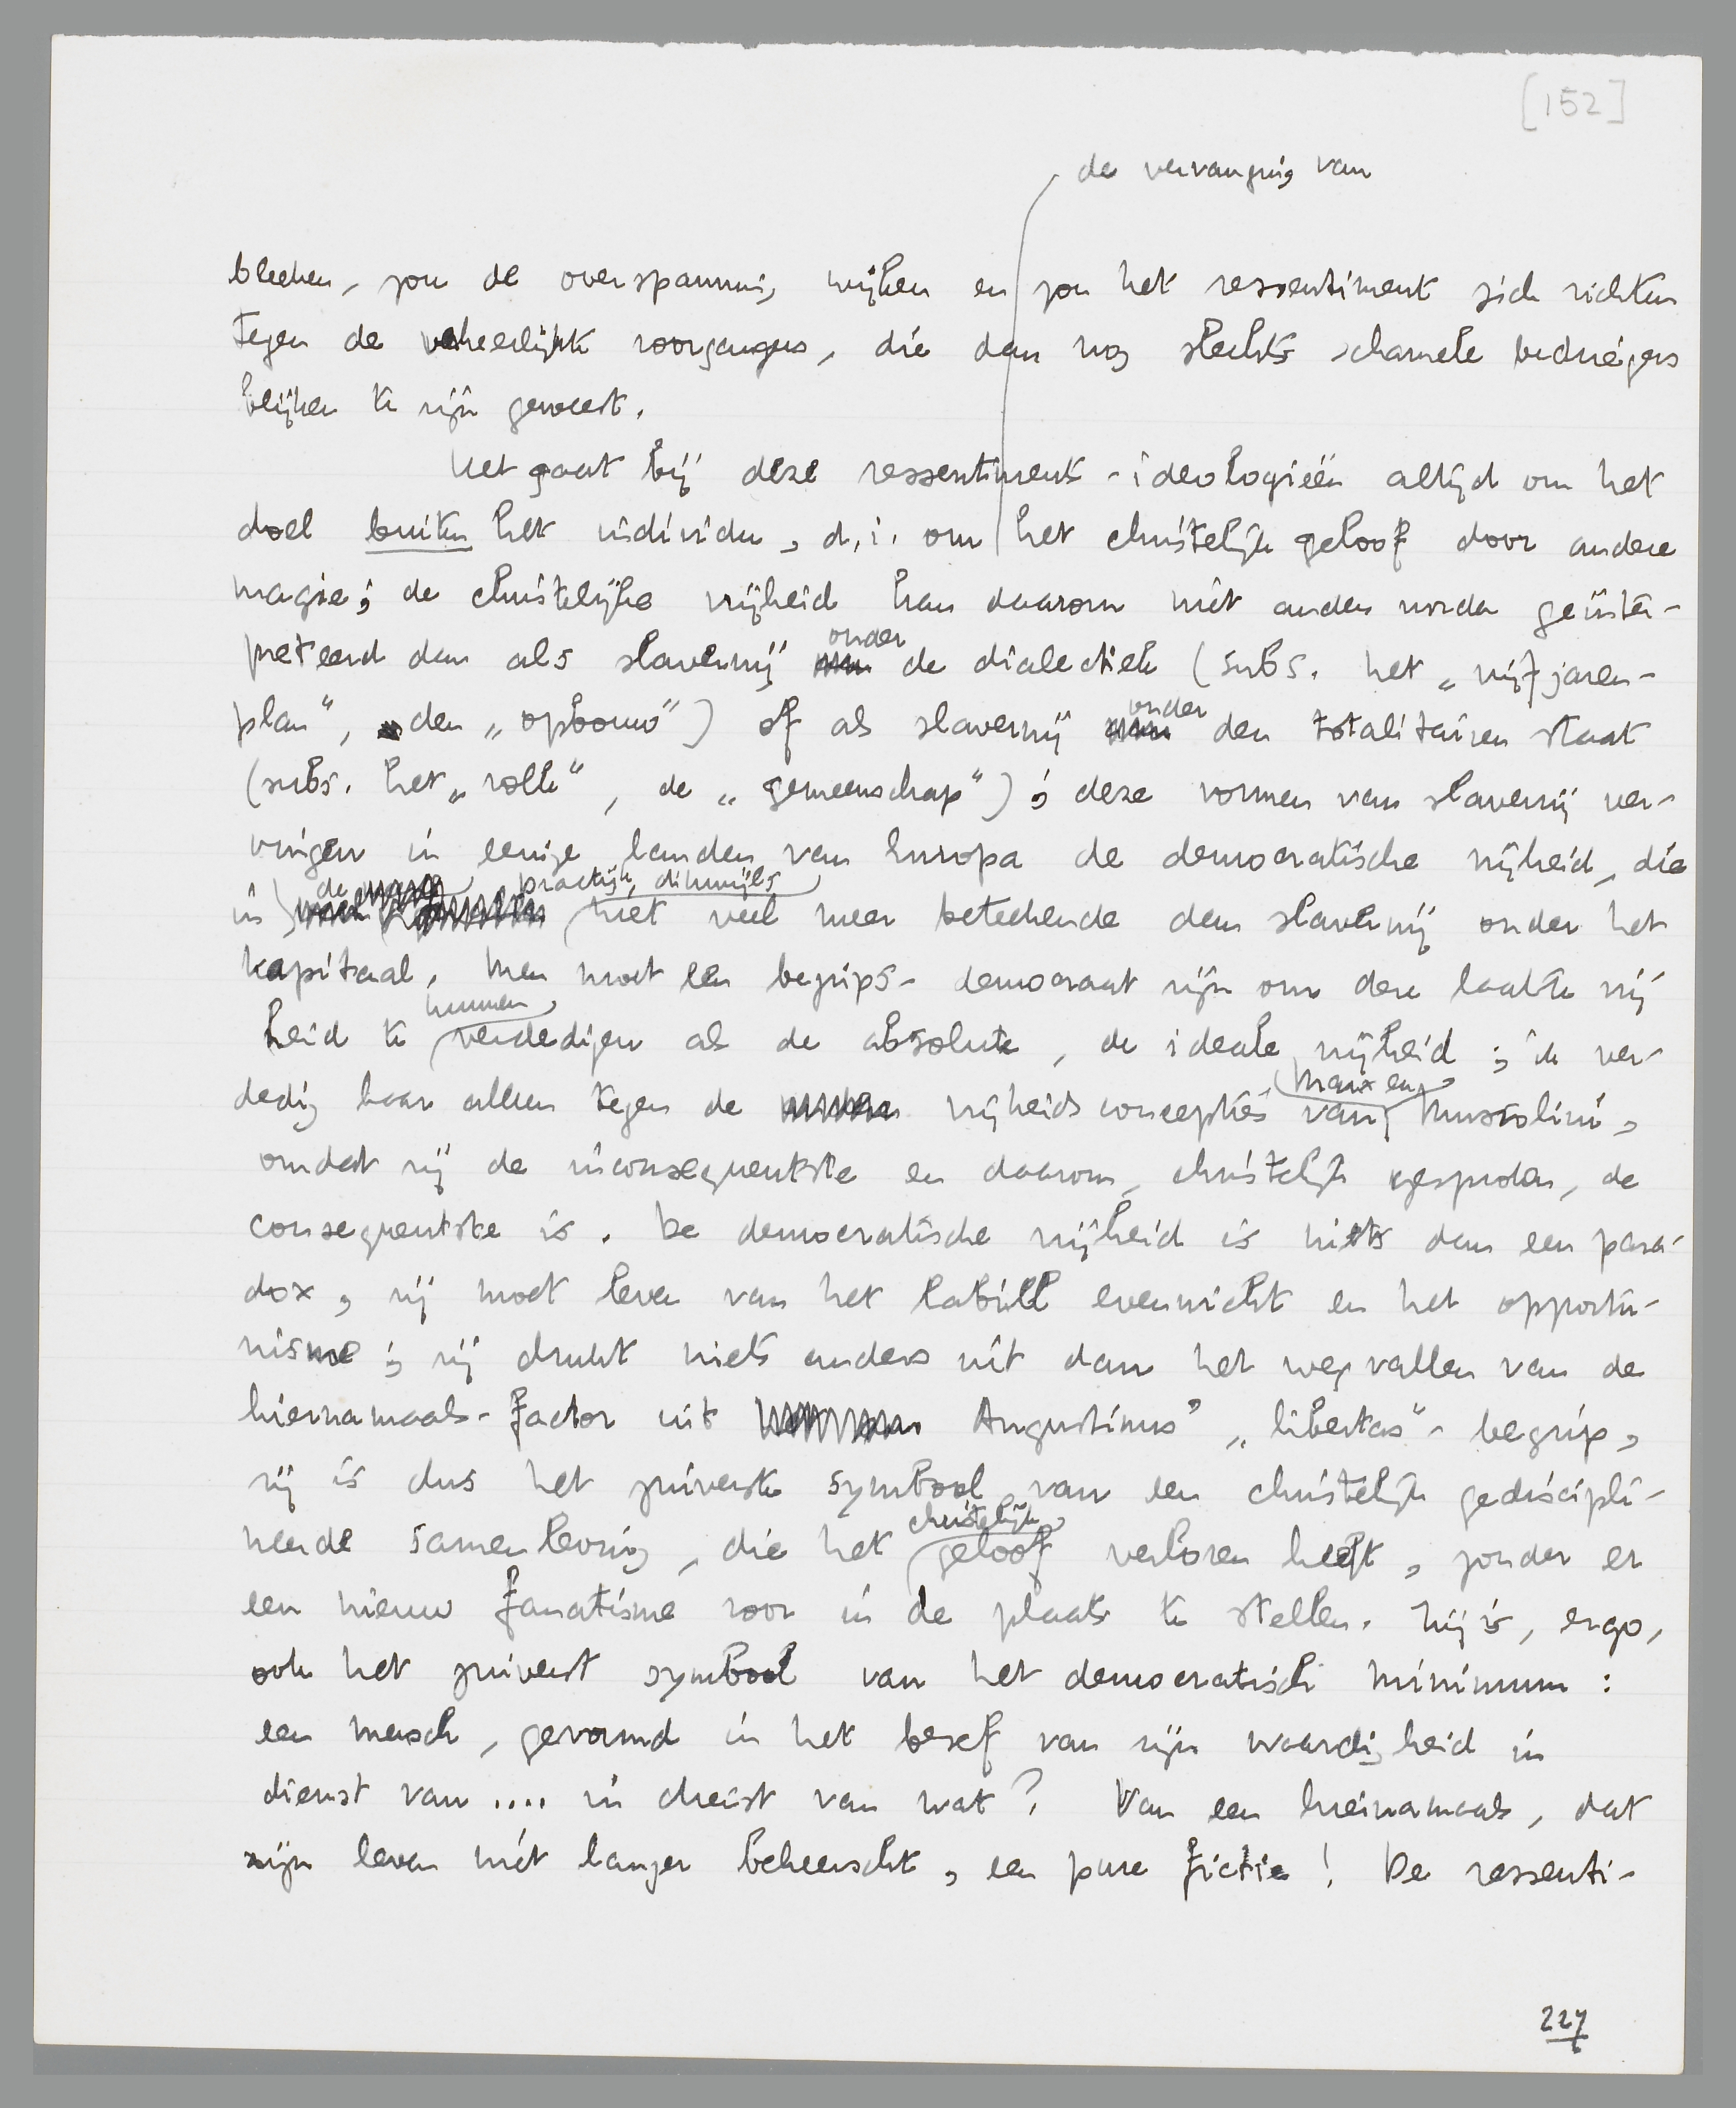 [152]
de vervanging van
bleeken, zou de overspanning wijken en zou het ressentiment zich richten
tegen de verheerlijkte voorgangers, die dan nog slechts schamele bedriegers
blijken te zijn geweest.
Het gaat bij deze ressentiments-ideologieën altijd om het
doel buiten het individu, d.i. om het christelijk geloof door andere
magie; de christelijke vrijheid kan daarom niet anders worden geïnter-
preteerd dan als slavernij onder de dialectiek (subs. het „vijfjaren-
plan", den „opbouw") of als slavernij onder den totalitairen staat
(subs. het „volk", de „gemeenschap"); deze vormen van slavernij ver-
vingen in eenige landen van Europa de democratische vrijheid, die
in de practijk, dikwijls niet veel meer beteekende dan slavernij onder het
kapitaal. Men moet een begrips-democraat zijn om deze laatste vrij
heid te kunnen verdedigen als de absolute, de ideale vrijheid; ik ver-
dedig haar alleen tegen de vrijheidsconcepties van Marx en Mussolini,
omdat zij de inconsequentste en daarom, christelijk gesproken, de
consequentste is. De democratische vrijheid is niets dan een para-
dox, zij moet leven van het labiele evenwicht en het opportu-
nisme; zij drukt niets anders uit dan het wegvallen van de
hiernamaals-factor uit Augustinus' „libertas"-begrip,
zij is dus het zuiverste symbool van een christelijk gediscipli-
neerde samenleving, die het christelijk geloof verloren heeft, zonder er
een nieuw fanatisme voor in de plaats te stellen. Zij is, ergo,
ook het zuiverst symbool van het democratisch minimum:
een mensch, gevormd in het besef van zijn waardigheid in
dienst van .... in dienst van wat? Van een hiernamaals, dat
zijn leven niet langer beheerscht, een pure fictie! De ressenti-
227